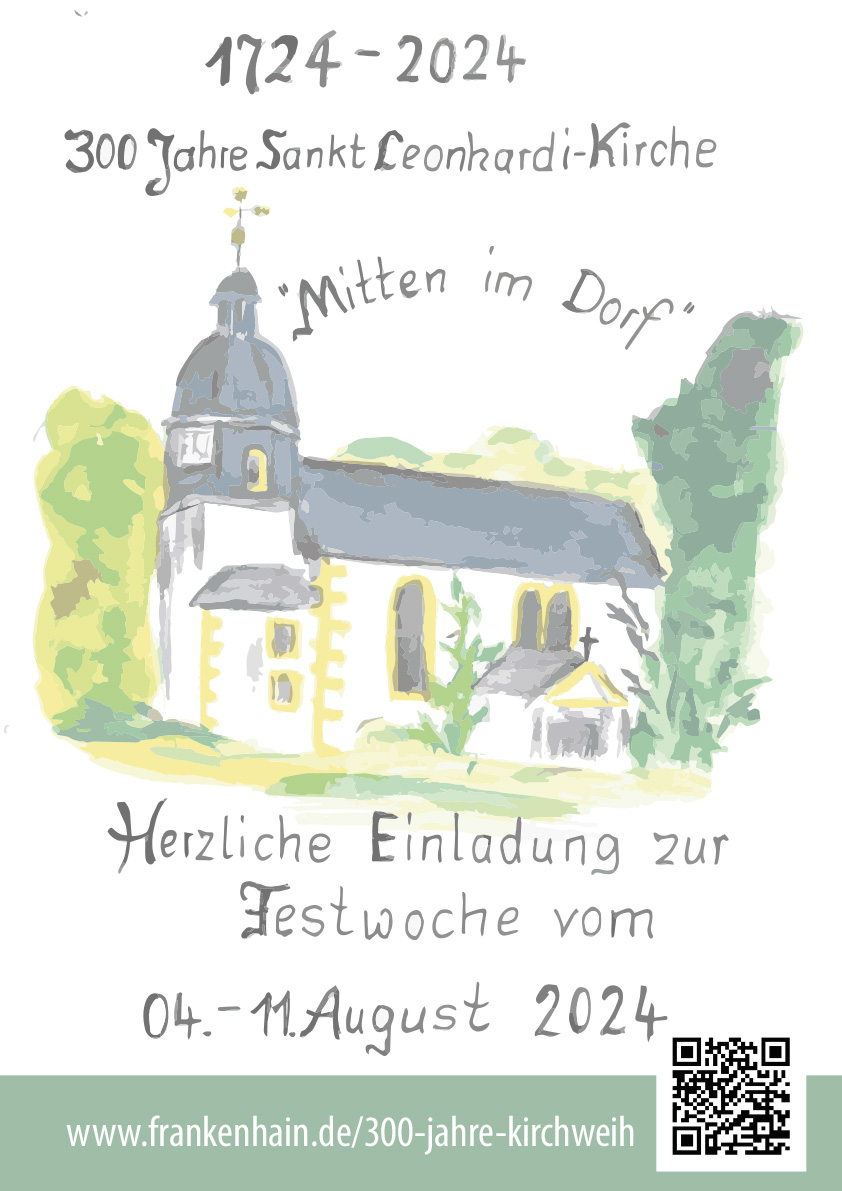 1724 - 2024
300 Jahre Sankt Leonhardi-Kirche
"Mitten im Dorf"
Herzliche Einladung zur
Festwoche vom
04. - 11. August 2024
www.frankenhain.de/300-jahre-kirchweih